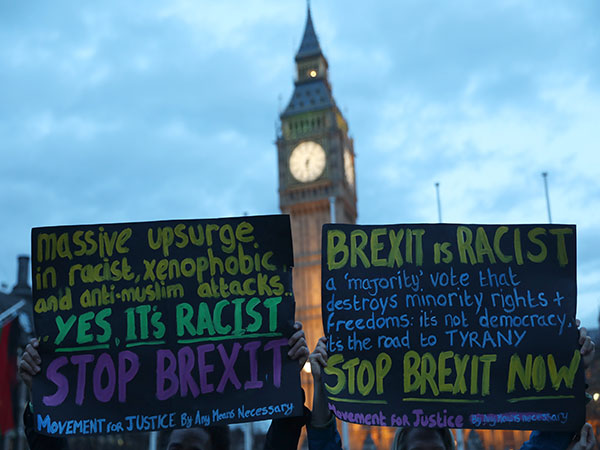 Massive upsurge
in racist, xenophobic
and anti-muslim attacks..
YES, it's RACIST
STOP BREXIT
MOVEMENT for JUSTICE By Any Means Necessary
BREXIT is RACIST
a 'majority' vote that
destroys minority rights +
freedoms: its not democracy,
its the road to TYRANNY
STOP BREXIT NOW
MOVEMENT FOR JUSTICE By Any Means necessary